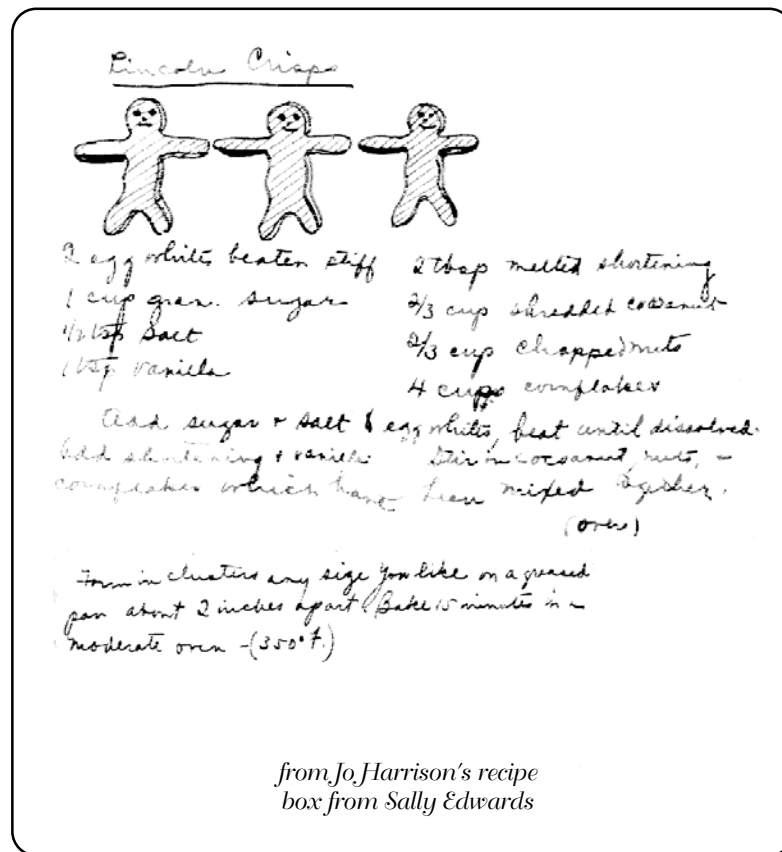 Lincoln Crisps
2 egg whites beaten stiff
1 cup gran. sugar
1/2 tsp salt
1 tsp vanilla
2 tbsp melted shortening
2/3 cup shredded cocoanut
2/3 cup chopped nuts
4 cups cornflakes
Add sugar + salt to egg whites, beat until dissolved.
Add shortening + vanilla. Stir in cocoanut, nuts, -
cornflakes which have been mixed together.
(over)
Form in clusters any size you like on a greased
pan about 2 inches apart. Bake 15 minutes in a
moderate oven - (350° F.)
from Jo Harrison's recipe
box from Sally Edwards